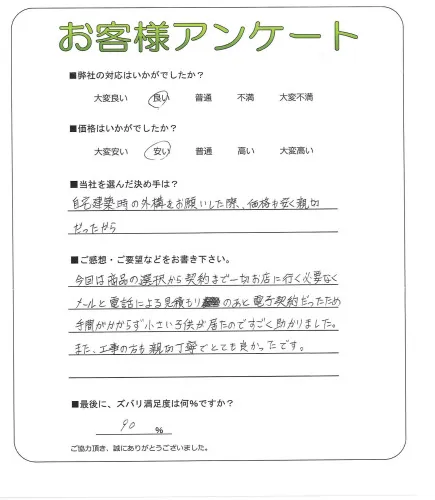 お客様アンケート
■弊社の対応はいかがでしたか？
大変良い 良い 普通 不満 大変不満
■価格はいかがでしたか？
大変安い 安い 普通 高い 大変高い
■当社を選んだ決め手は？
自宅建築時の外構をお願いした際、価格も安く親切
だったから
■ご感想・ご要望などをお書き下さい。
今回は商品の選択から契約まで一切お店に行く必要なく
メールと電話による見積もりのあと電子契約だったため
手間がかからず小さい子供が居たのですごく助かりました。
また、工事の方も親切丁寧でとても良かったです。
■最後に、ズバリ満足度は何%ですか？
90 %
ご協力頂き、誠にありがとうございました。